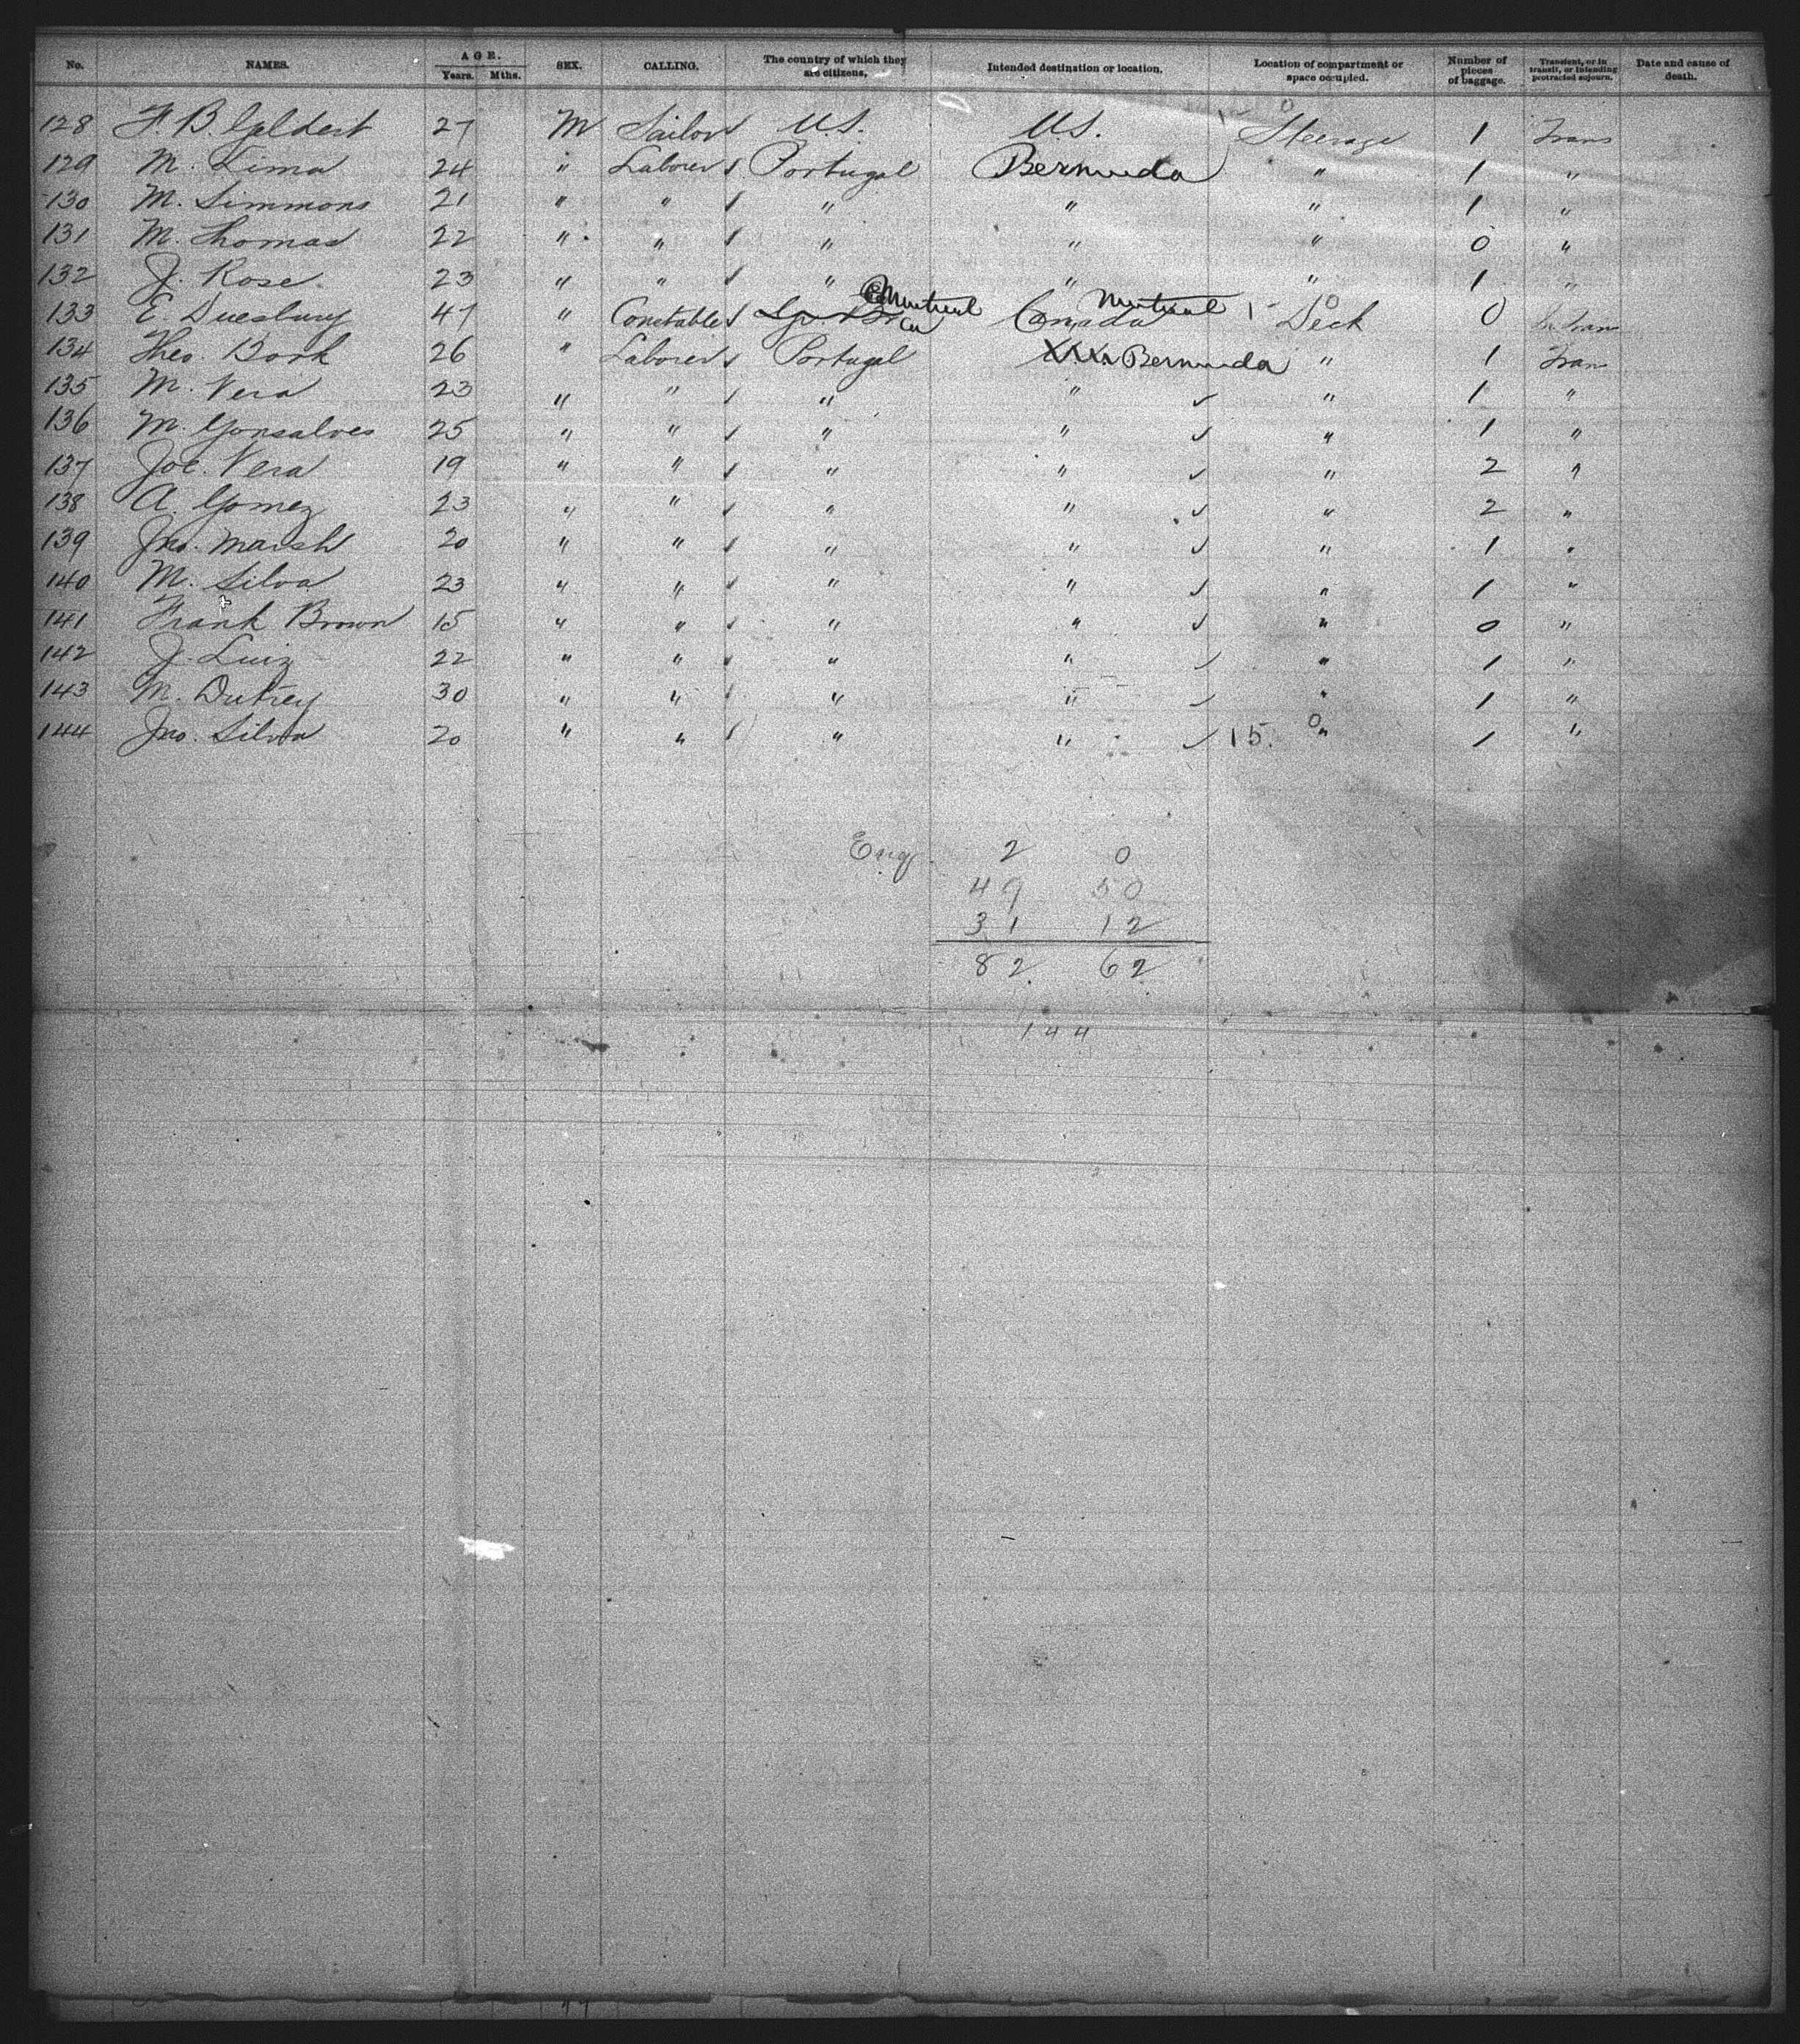 No. NAMES. AGE. Years. Mths. SEX. CALLING. The country of which they are citizens. Intended destination or location. Location of compartment or space occupied. Number of pieces of baggage. Transient, or in transit, or intending protracted sojourn. Date and cause of death.
128 F. B. Geldert 27 M Sailor U.S. U.S. Steerage 1 Trans
129 M. Lima 24 " Laborer Portugal Bermuda " 1 "
130 M. Simmons 21 " " " " " 1 "
131 M. Thomas 22 " " " " " 0 "
132 J. Rose 23 " " " " " 1 "
133 E. Duesbury 47 " Constable Canada Deck 0
134 Theo. Bork 26 " Laborer Portugal Bermuda " 1 Trans
135 M. Vera 23 " " " " ✓ " 1 "
136 M. Gonsalves 25 " " " " ✓ " 1 "
137 Joe. Vera 19 " " " " ✓ " 2 "
138 A. Gomez 23 " " " " ✓ " 2 "
139 Jno. Marsh 20 " " " " ✓ " 1 "
140 M. Silva 23 " " " " ✓ " 1 "
141 Frank Brown 15 " " " " ✓ " 0 "
142 J. Luiz 22 " " " " ✓ " 1 "
143 M. Dutrey 30 " " " " ✓ " 1 "
144 Jno. Silva 20 " " " " ✓ 15. 0 " 1 "
Eng 2 0
49 50
31 12
82 62
144